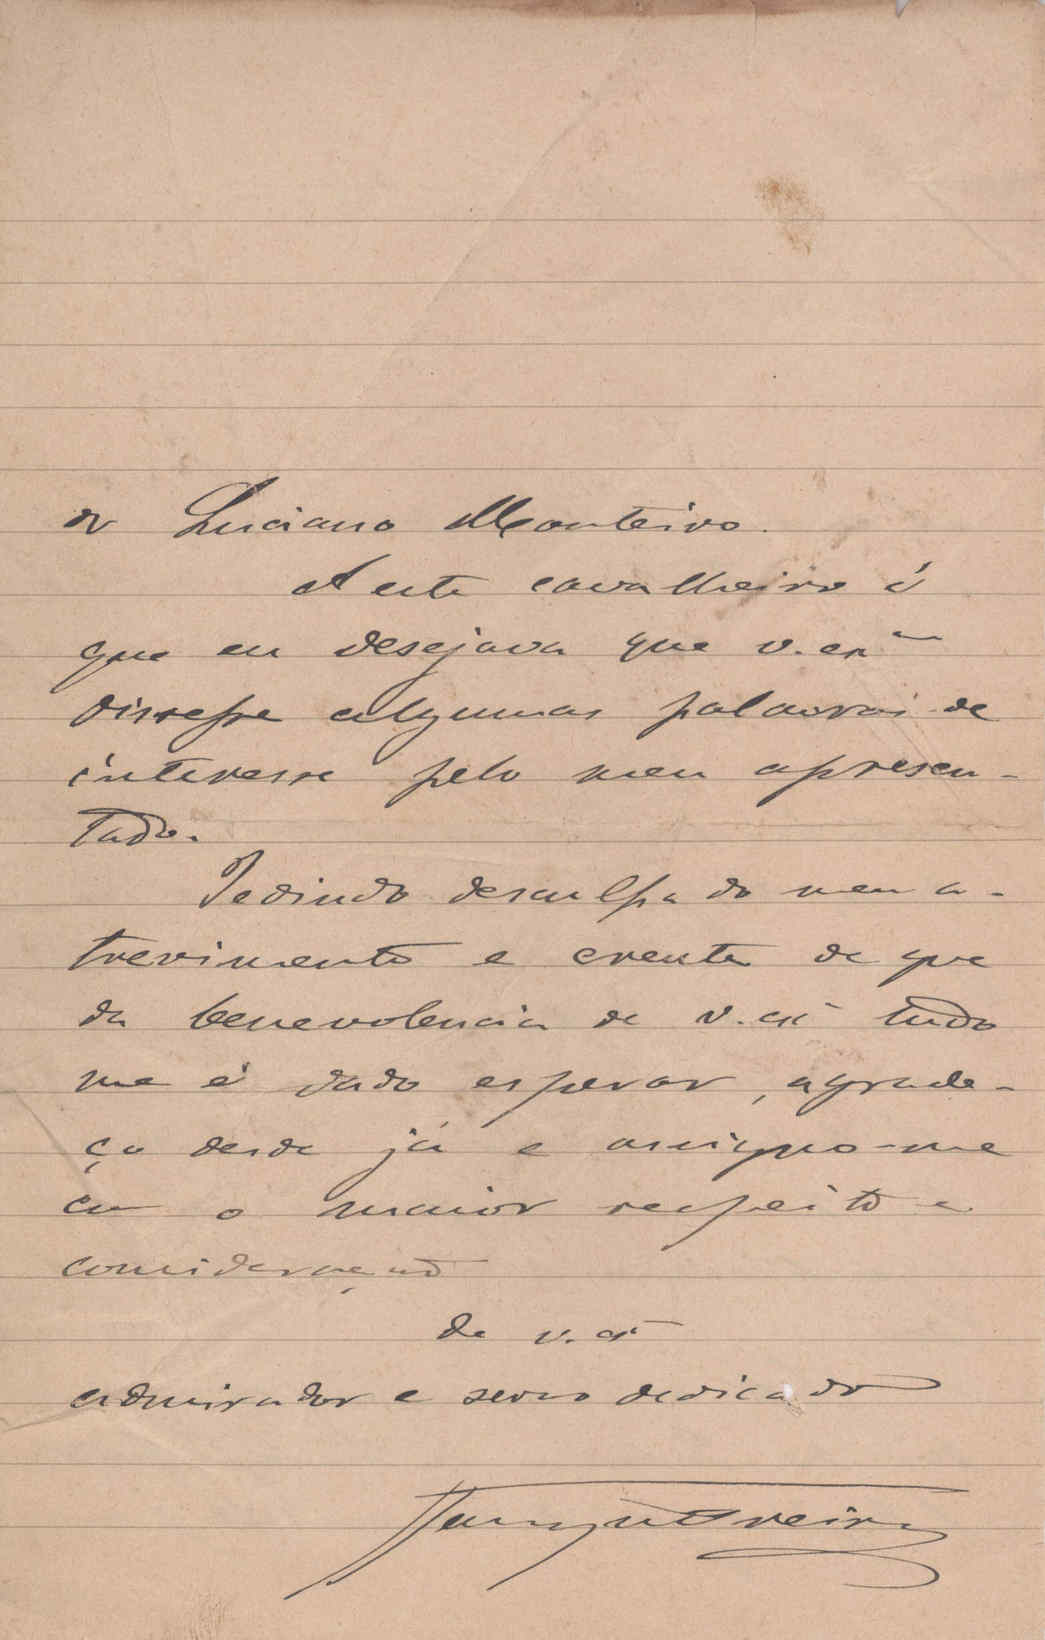 dr Luciano Monteiro.
A este cavalheiro é
que eu desejava que v. exª
dissesse algumas palavras de
interesse pelo meu apresen-
tado.
Pedindo desculpa do meu a-
trevimento e crente de que
da benevolencia de v. exª tudo
me é dado esperar, agrade-
ço desde já e assigno-me
com o maior respeito e
consideração
De v. exª
admirador e servo dedicado